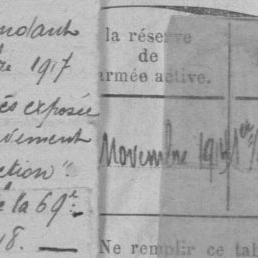 ndant
1917
exposée
vement
ction".
la 69e
18.
la réserve
de
armée active.
Novembre 191
1er
Ne remplir ce tab